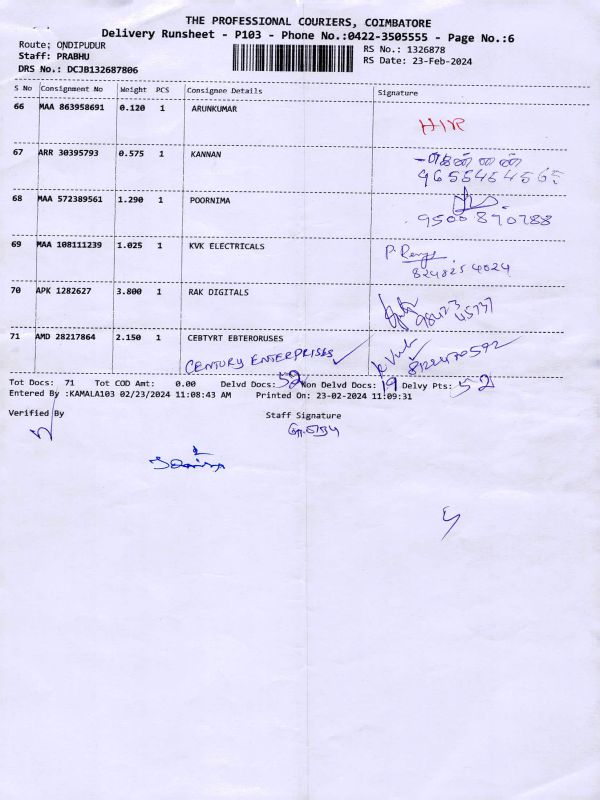 THE PROFESSIONAL COURIERS, COIMBATORE
Delivery Runsheet - P103 - Phone No.:0422-3505555 - Page No.:6
Route: ONDIPUDUR RS No.: 1326878
Staff: PRABHU RS Date: 23-Feb-2024
DRS No.: DCJB132687806
S No Consignment No Weight PCS Consignee Details Signature
66 MAA 863958691 0.120 1 ARUNKUMAR
HIR
67 ARR 30395793 0.575 1 KANNAN
68 MAA 572389561 1.290 1 POORNIMA
9500870788
69 MAA 108111239 1.025 1 KVK ELECTRICALS
8248254024
70 APK 1282627 3.800 1 RAK DIGITALS
98423
45737
71 AMD 28217864 2.150 1 CEBTYRT EBTERORUSES
CENTURY ENTERPRISES
8122470592
Tot Docs: 71 Tot COD Amt: 0.00 Delvd Docs: 52 Non Delvd Docs: 19 Delvy Pts: 52
Entered By :KAMALA103 02/23/2024 11:08:43 AM Printed On: 23-02-2024 11:09:31
Verified By Staff Signature